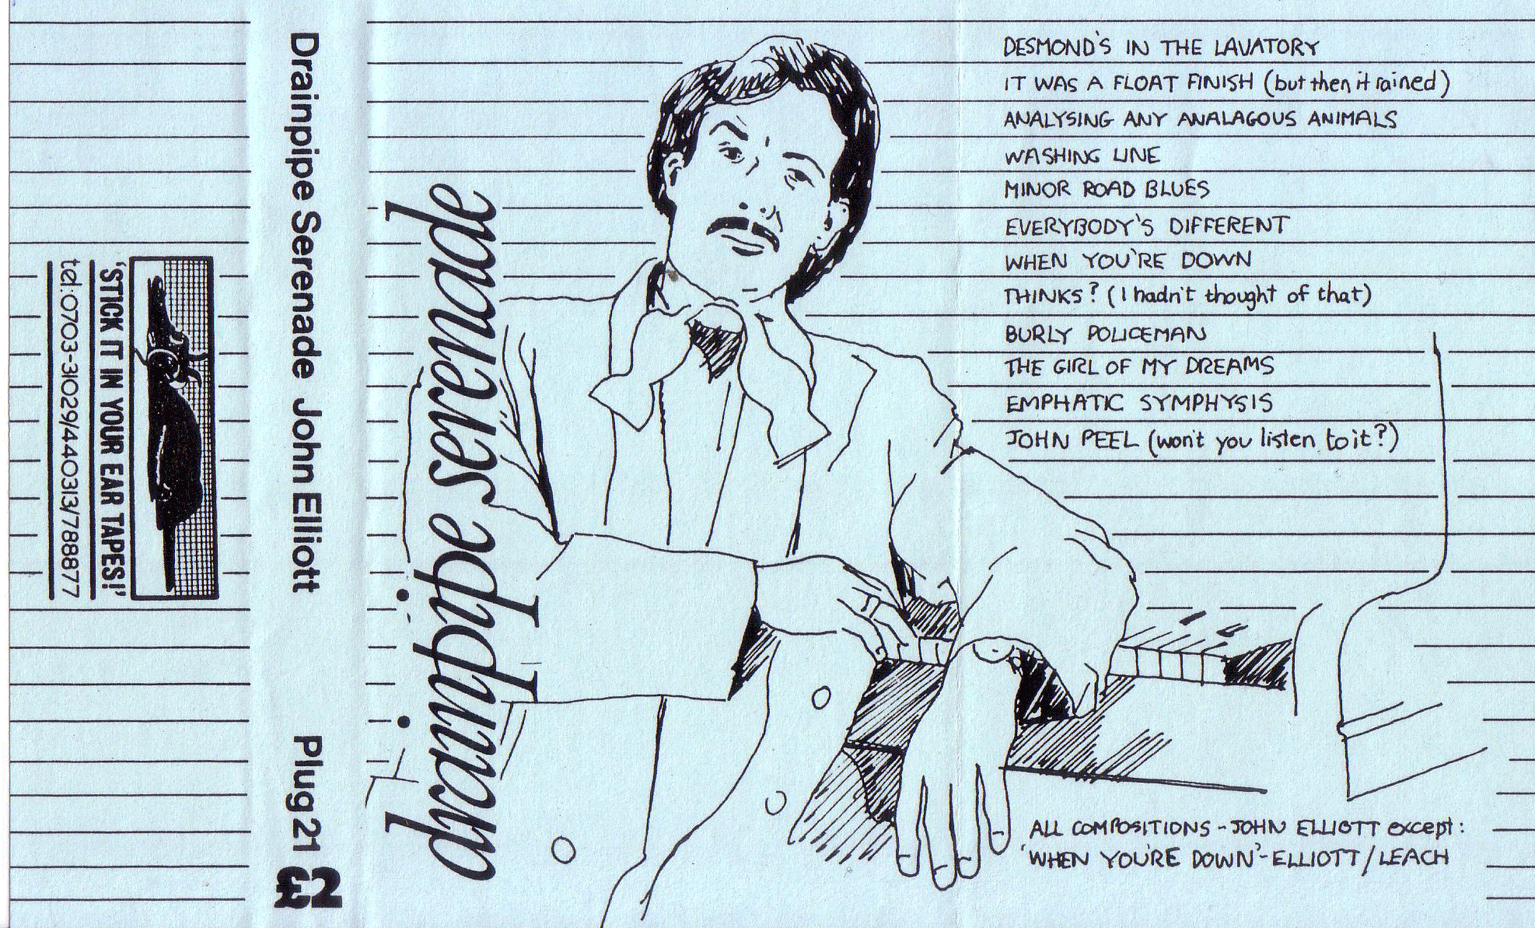 'STICK IT IN YOUR EAR TAPES!'
tel:0703-31029/440313/788877
Drainpipe Serenade John Elliott Plug 21
£2
drainpipe serenade
DESMOND'S IN THE LAVATORY
IT WAS A FLOAT FINISH (but then it rained)
ANALYSING ANY ANALAGOUS ANIMALS
WASHING LINE
MINOR ROAD BLUES
EVERYBODY'S DIFFERENT
WHEN YOU'RE DOWN
THINKS? (I hadn't thought of that)
BURLY POLICEMAN
THE GIRL OF MY DREAMS
EMPHATIC SYMPHYSIS
JOHN PEEL (won't you listen to it?)
ALL COMPOSITIONS - JOHN ELLIOTT except:
'WHEN YOU'RE DOWN' - ELLIOTT / LEACH